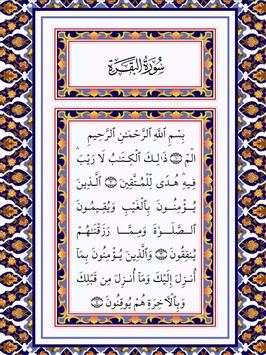 سُورَةُ البَقَرَةِ
بِسْمِ اللَّهِ الرَّحْمَٰنِ الرَّحِيمِ
الٓمٓ ۝ ذَٰلِكَ الْكِتَٰبُ لَا رَيْبَ ۛ
فِيهِ ۛ هُدًى لِّلْمُتَّقِينَ ۝ الَّذِينَ
يُؤْمِنُونَ بِالْغَيْبِ وَيُقِيمُونَ
الصَّلَوٰةَ وَمِمَّا رَزَقْنَٰهُمْ
يُنفِقُونَ ۝ وَالَّذِينَ يُؤْمِنُونَ بِمَا
أُنزِلَ إِلَيْكَ وَمَآ أُنزِلَ مِن قَبْلِكَ
وَبِالْأَخِرَةِ هُمْ يُوقِنُونَ ۝